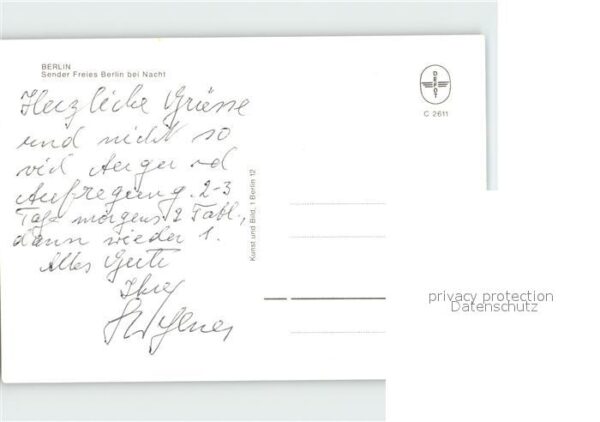 BERLIN
Sender Freies Berlin bei Nacht
Herzliche Grüsse
und nicht so
viel Ärger und
Aufregung. 2-3
Tage morgens 2 Tabl.,
dann wieder 1.
Alles Gute
Ihr
DEFOT
C 2611
Kunst und Bild, 1 Berlin 12
privacy protection
Datenschutz